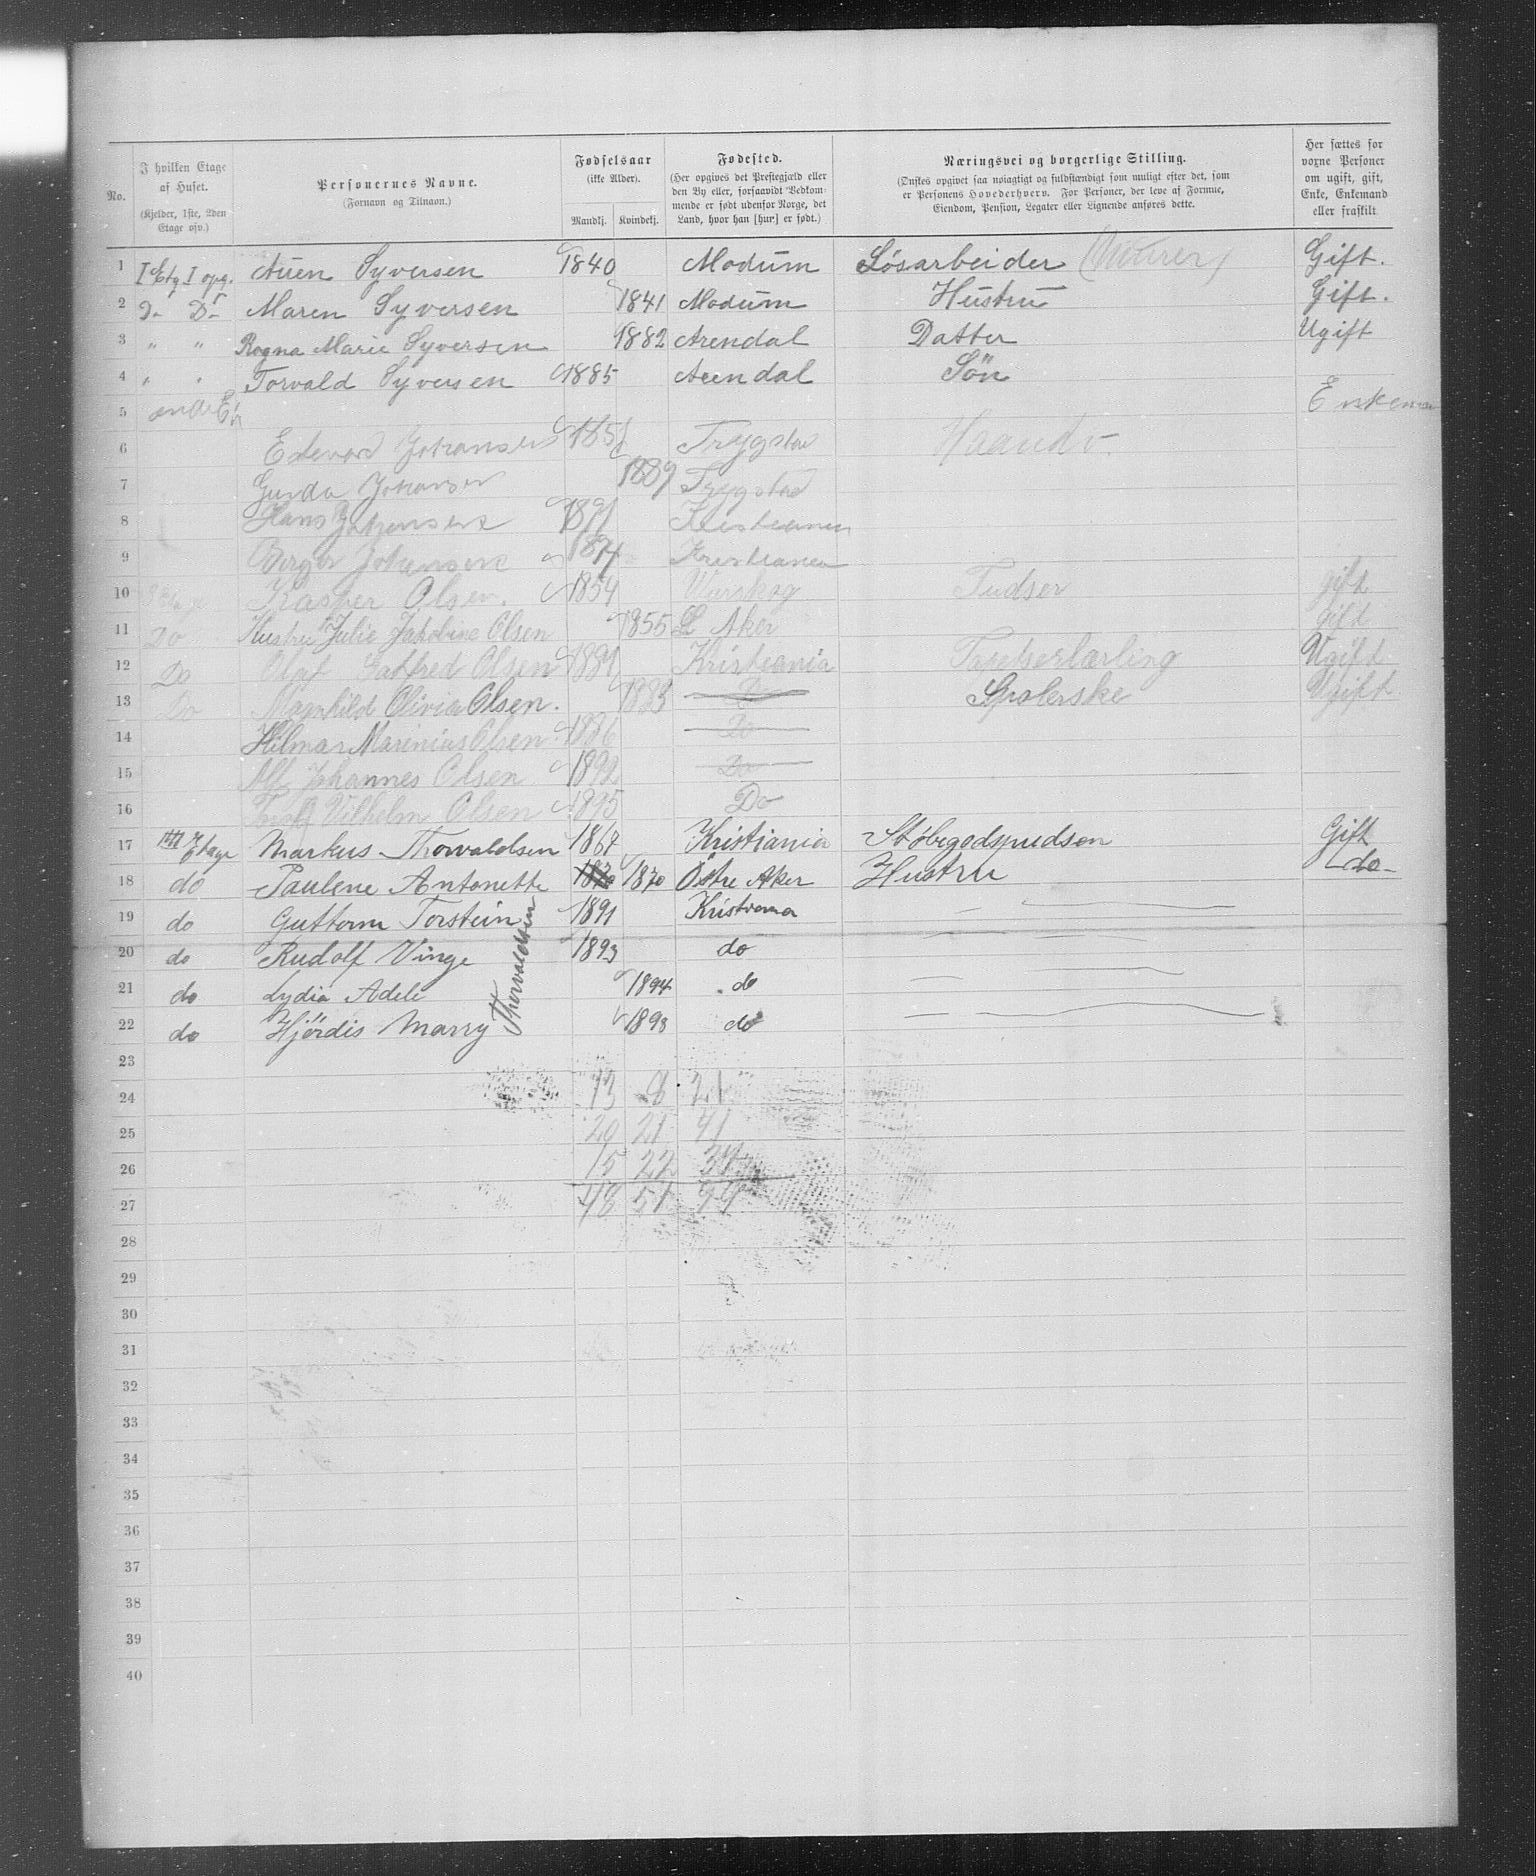 No. I hvilken Etage af Huset. (Kjelder, 1ste, 2den Etage osv.) Personernes Navne. (Fornavn og Tilnavn.) Fødselsaar (ikke Alder). Mandkj. Kvindekj. Fødested. (Her opgives det Prestegjæld eller den By eller, forsaavidt Vedkommende er født udenfor Norge, det Land, hvor han [hun] er født.) Næringsvei og borgerlige Stilling. (Ønskes opgivet saa nøiagtigt og fuldstændigt som muligt efter det, som er Personens Hovederhverv. For Personer, der leve af Formue, Eiendom, Pension, Legater eller Lignende anføres dette. Her sættes for voxne Personer om ugift, gift, Enke, Enkemand eller fraskilt
1 I Etg I opg. Auen Syversen 1840 Modum Løsarbeider (Murer) Gift.
2 D- D- Maren Syversen 1841 Modum Hustru Gift.
3 " " Ragna Marie Syversen 1882 Arendal Datter Ugift
4 " " Torvald Syversen 1885 Arendal Søn
5 Enkeman
6 Edevard Johansen 1851 Trygstad Haandv.
7 Gunda Johansen 1889 Trygstad
8 Hans Johansen 1891 Kristiania
9 Birger Johansen 1894 Kristiania
10 Kasper Olsen. 1854 Urskog Tudser gift
11 Do Hustru Julie Jakobine Olsen 1855 L Aker gift
12 Do Olaf Gotfred Olsen 1881 Kristiania Ugift
13 Do Magnhild Olivia Olsen. 1883 Do Spolerske Ugift
14 Hilmar Marinius Olsen 1886 Do
15 Alf Johannes Olsen 1892 Do
16 Vilhelm Olsen 1895 Do
17 III Etage Markus Thorvaldsen 1867 Kristiania Støbegodspudser Gift
18 do Paulene Antonette 1870 1870 Østre Aker Hustru do
19 do Guttorm Torstein 1891 Kristiania
20 do Rudolf Vinge 1893 do
21 do Lydia Adele 1894 do
22 do Hjørdis Marry 1898 do
Thorvaldsen
23
24 13 8 21
25 20 21 41
26 15 22 37
27 48 51 99
28
29
30
31
32
33
34
35
36
37
38
39
40